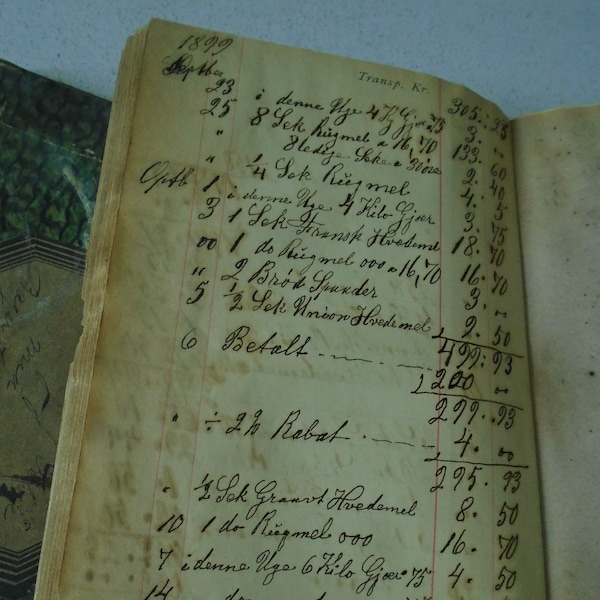 1899
Septbr
Transp. Kr. 305. 93
23 i denne Uge 4 Kg. Gjær 75 3. "
25 8 Sek Rugmel a 16,70 133. 60
" 8 ledige Sekke a 30 øre 2. 40
" 1/4 Sek Rugmel 4. 5
Optb 1 i denne Uge 4 Kilo Gjær 3. 75
3 1 Sek Fransk Hvedemel 18. 70
" 1 do Rugmel 000 a 16,70 16. 70
" 2 Brød Spander 3. "
5 1/2 Sek Union Hvedemel 2. 50
499. 93
6 Betalt 200 "
299. 93
" ÷ 2% Rabat 4. 00
295. 93
" 1/2 Sek Graavt Hvedemel 8. 50
10 1 do Rugmel 000 16. 70
7 i denne Uge 6 Kilo Gjær 75 4. 50
14